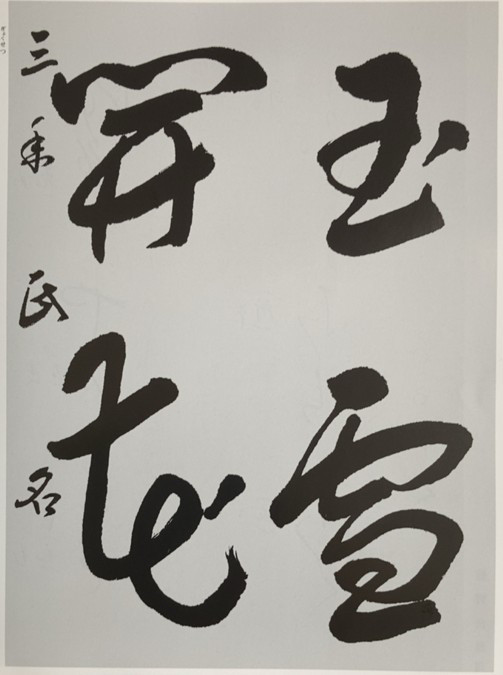 玉雪
開花
三年氏名